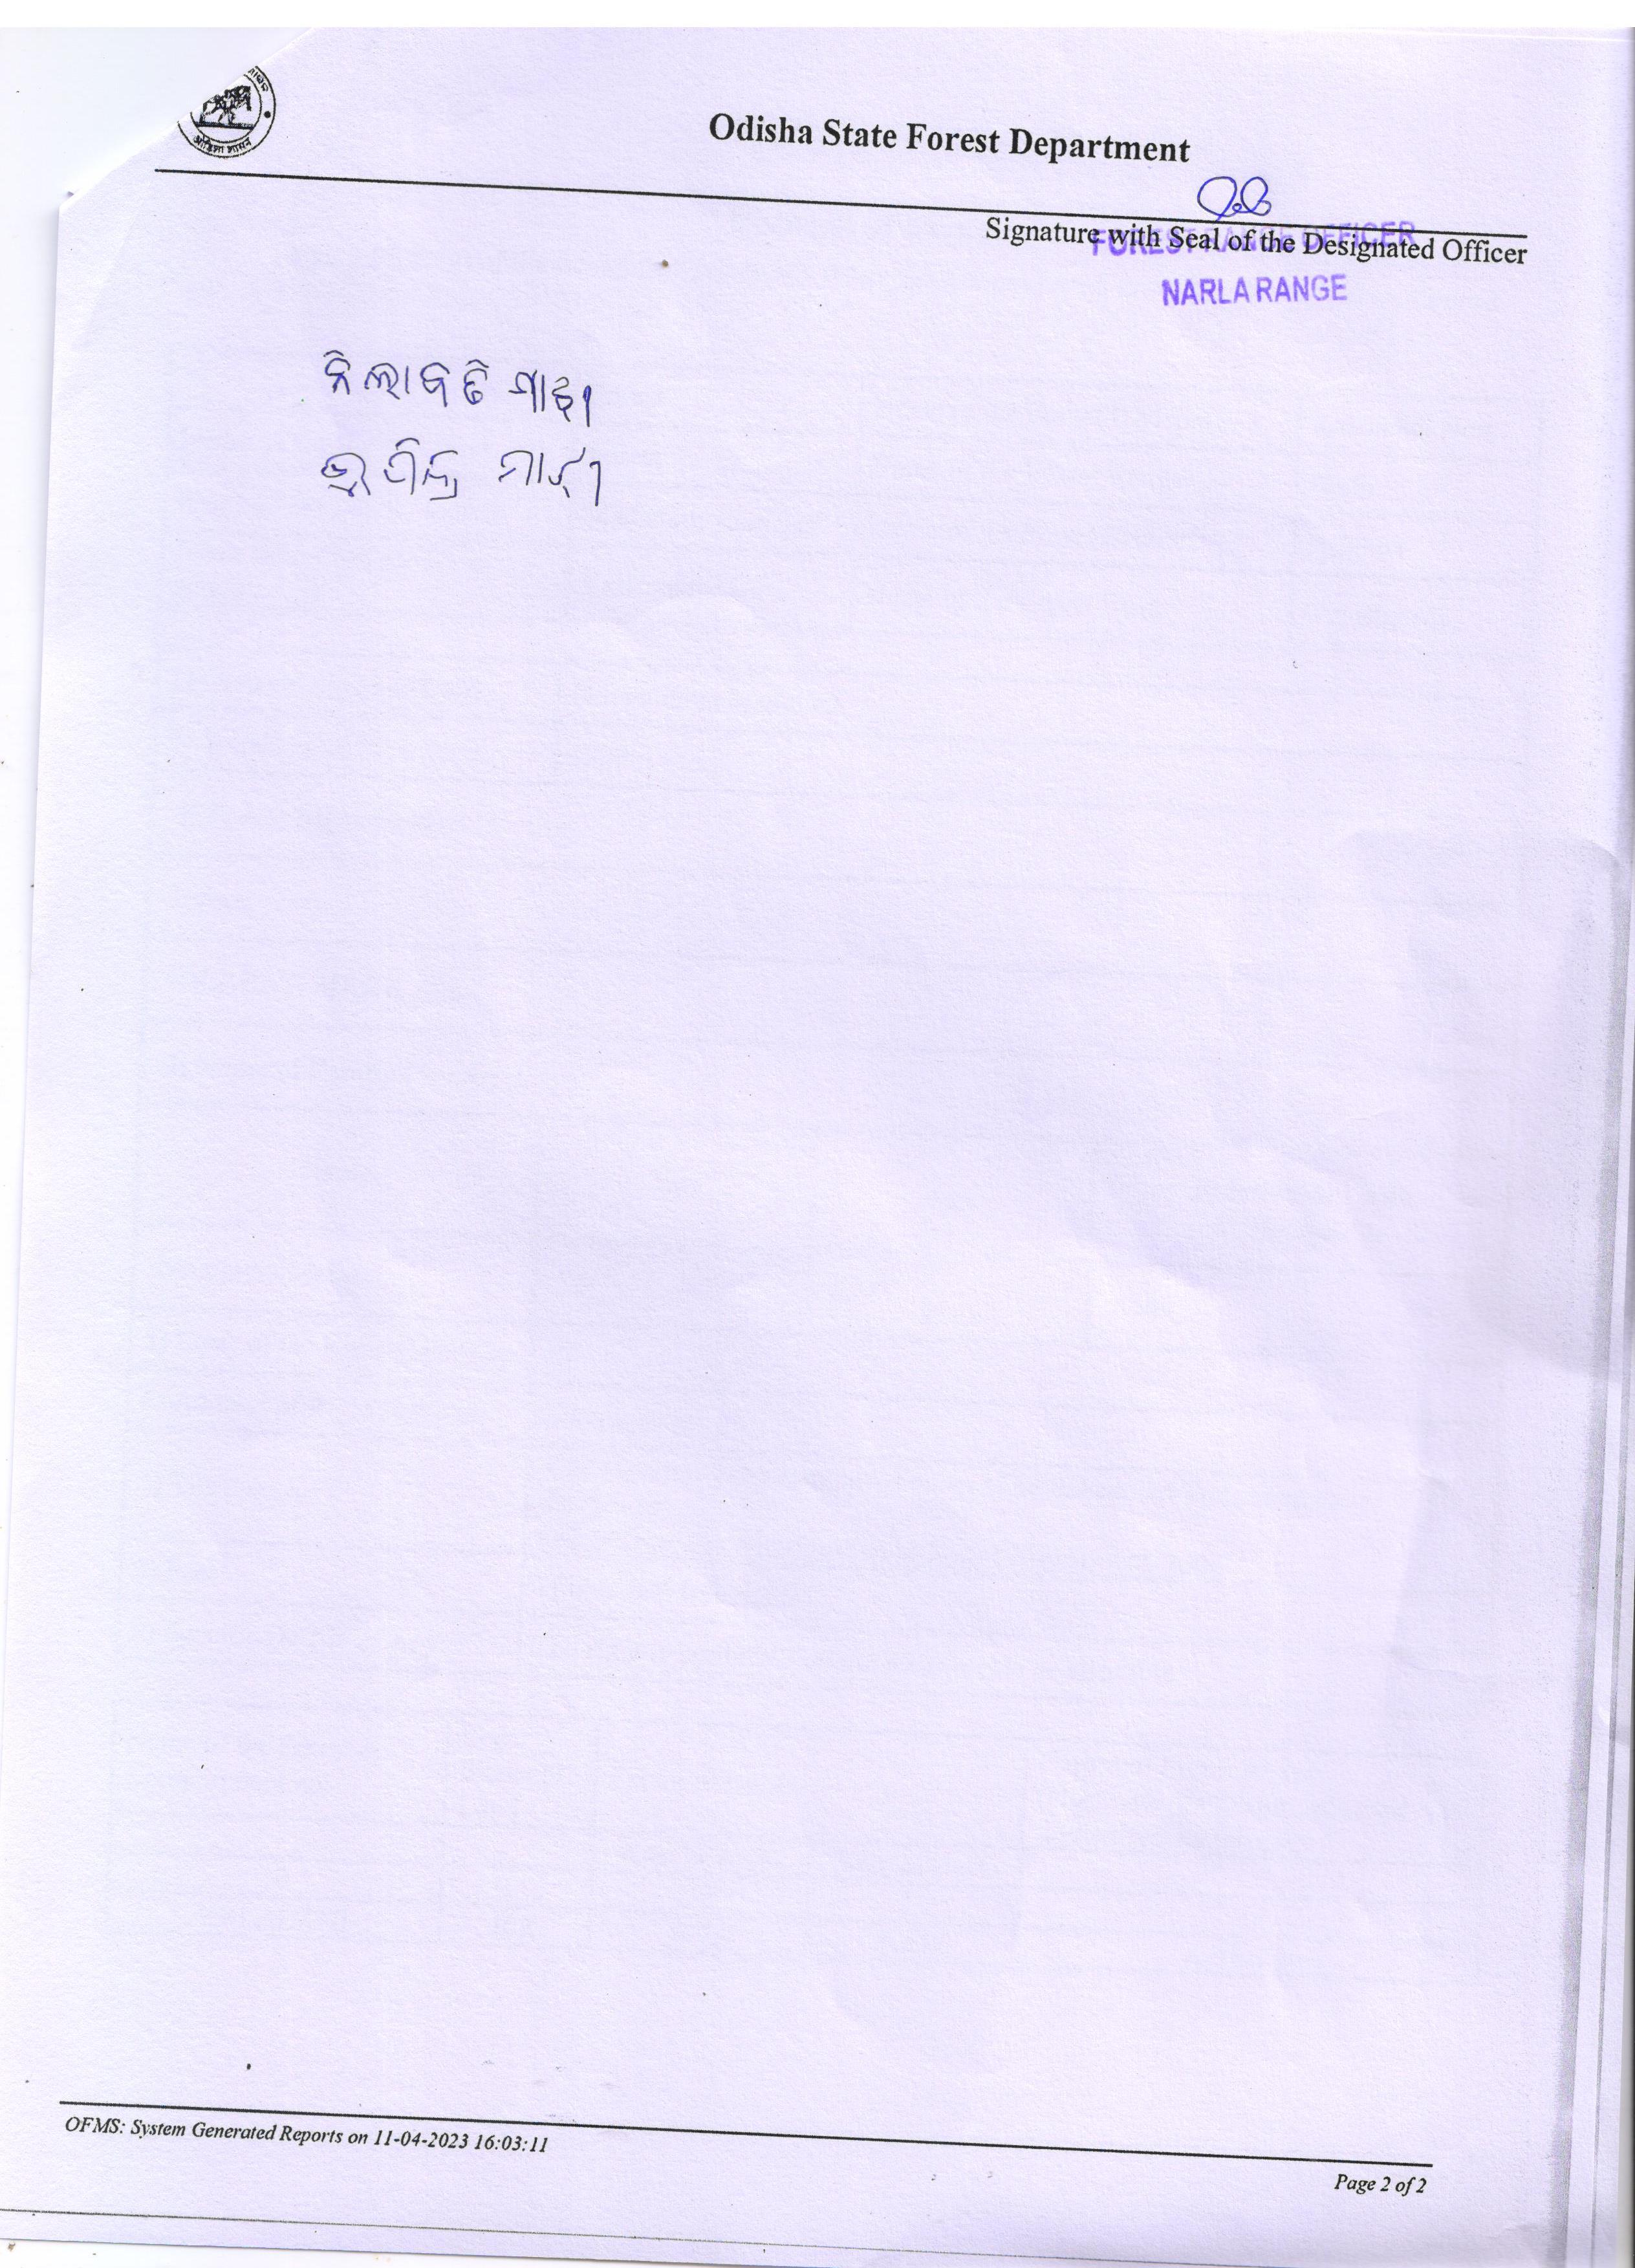 ओड़िशा शासन
Odisha State Forest Department
Signature with Seal of the Designated Officer
FOREST RANGE OFFICER
NARLA RANGE
ନିଲାବତି ମାଝୀ
ମାଝୀ
OFMS: System Generated Reports on 11-04-2023 16:03:11
Page 2 of 2